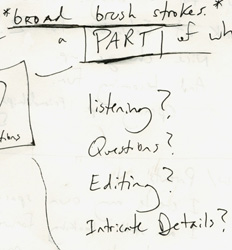 *broad brush strokes.*
a PART of wh
listening?
Questions?
Editing?
Intricate Details?
tions